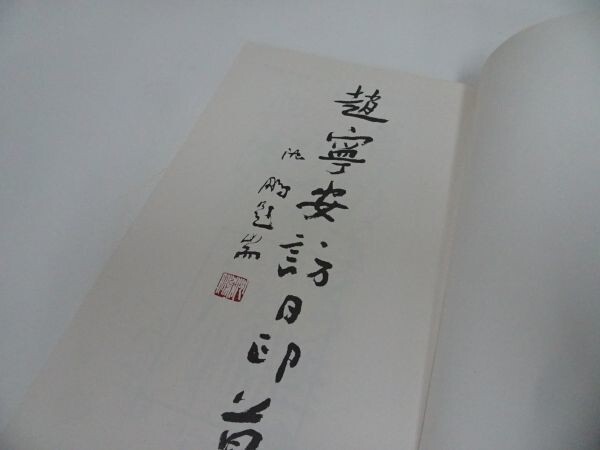 趙寧安訪日印
沈鵬題耑